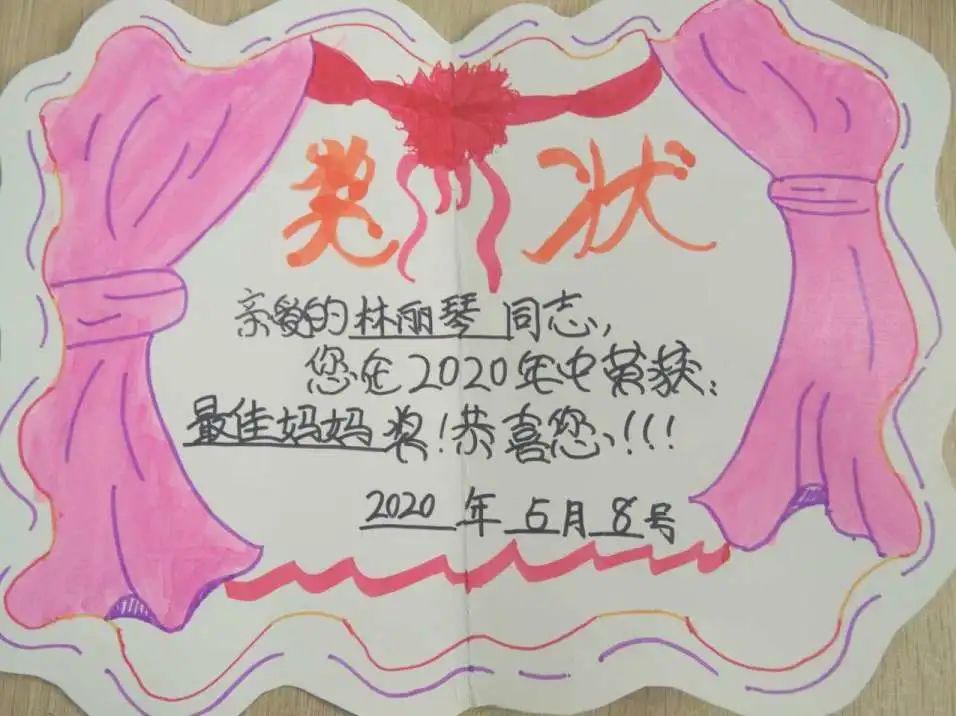 奖状
亲爱的林丽琴同志,
您在2020年中荣获:
最佳妈妈奖!恭喜您、!!!
2020年5月8号